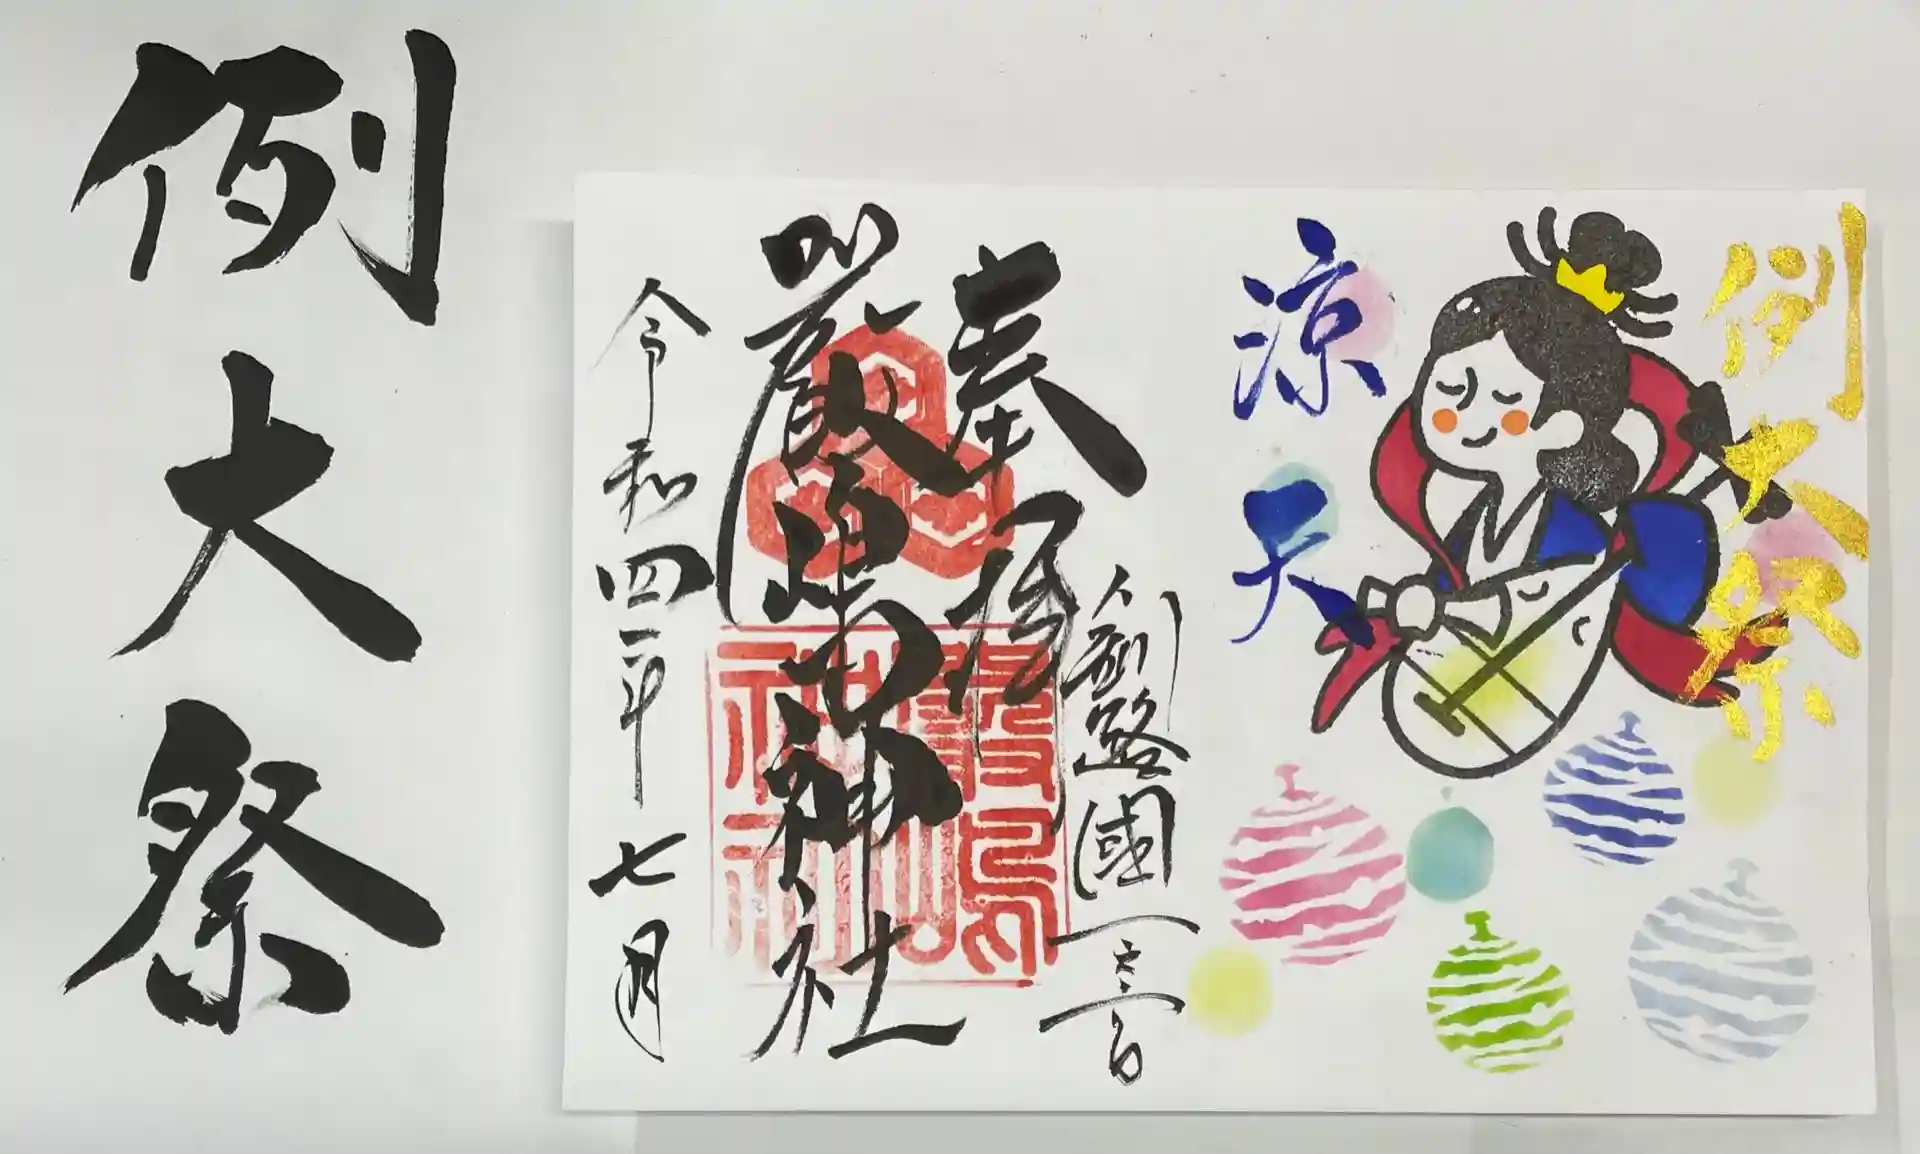 例大祭
例大祭
涼天
釧路國一之宮
奉拝
嚴嶋神社
令和四年七月